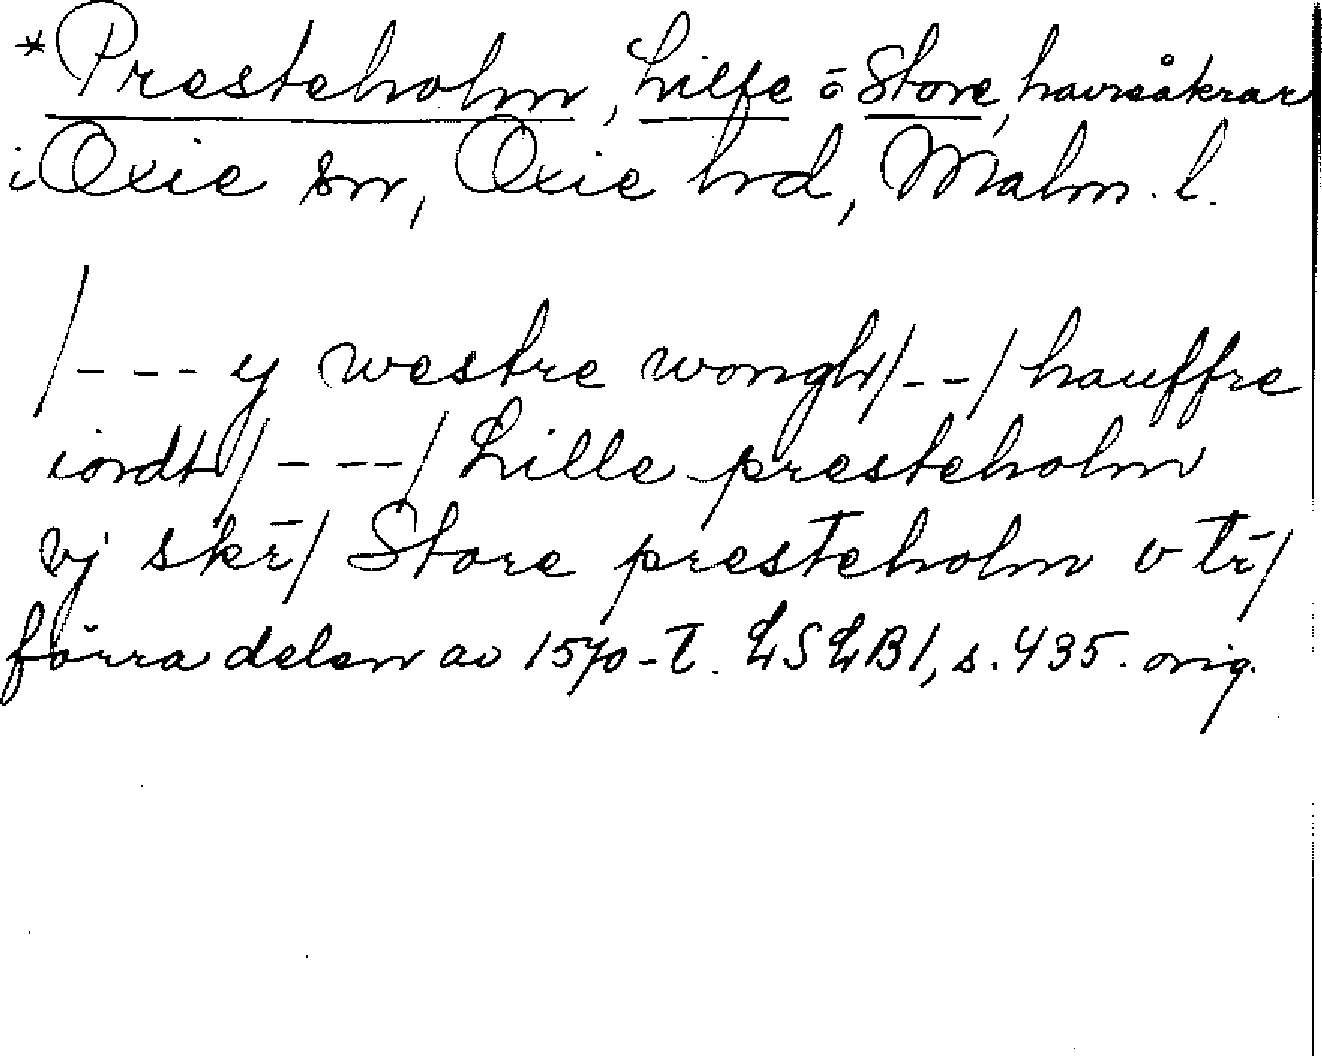 *Presteholm, Lille o Store, havreåkrar
i Oxie sn, Oxie hrd, Malm. l.
/--- y westre wongh/--/ hauffre
iordt/---/ Lille presteholm
vj skr̄/ Store presteholm v tr̄/
förra delen av 1570-t. LSLB1, s. 435. orig.